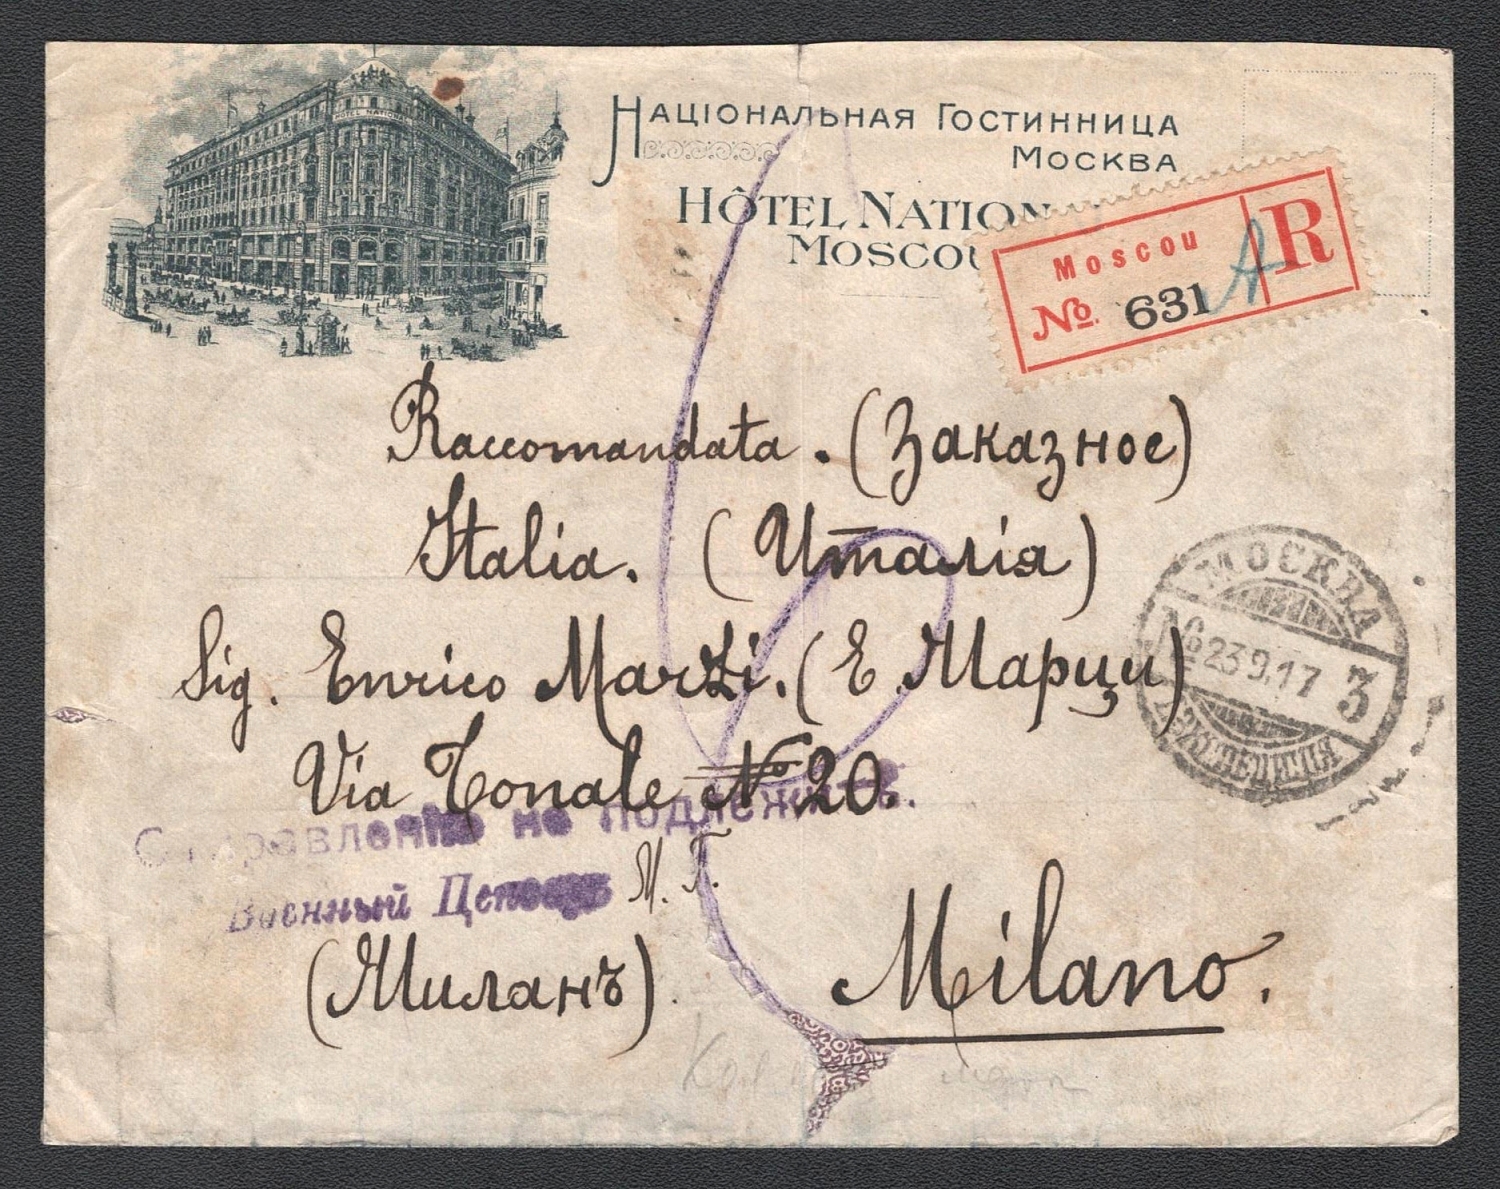 HOTEL NATIONAL
Національная Гостинница
Москва
HÔTEL NATION
MOSCOU
Moscou
№ 631
R
Raccomandata. (Заказное)
Italia. (Италія)
Sig. Enrico Marzi. (Е. Марци)
Via Tonale № 20.
Отправленію не подлежитъ.
Военный Цензоръ М. Г.
(Миланъ). Milano.
МОСКВА
23.9.17
3
ЭКСПЕДИЦІЯ